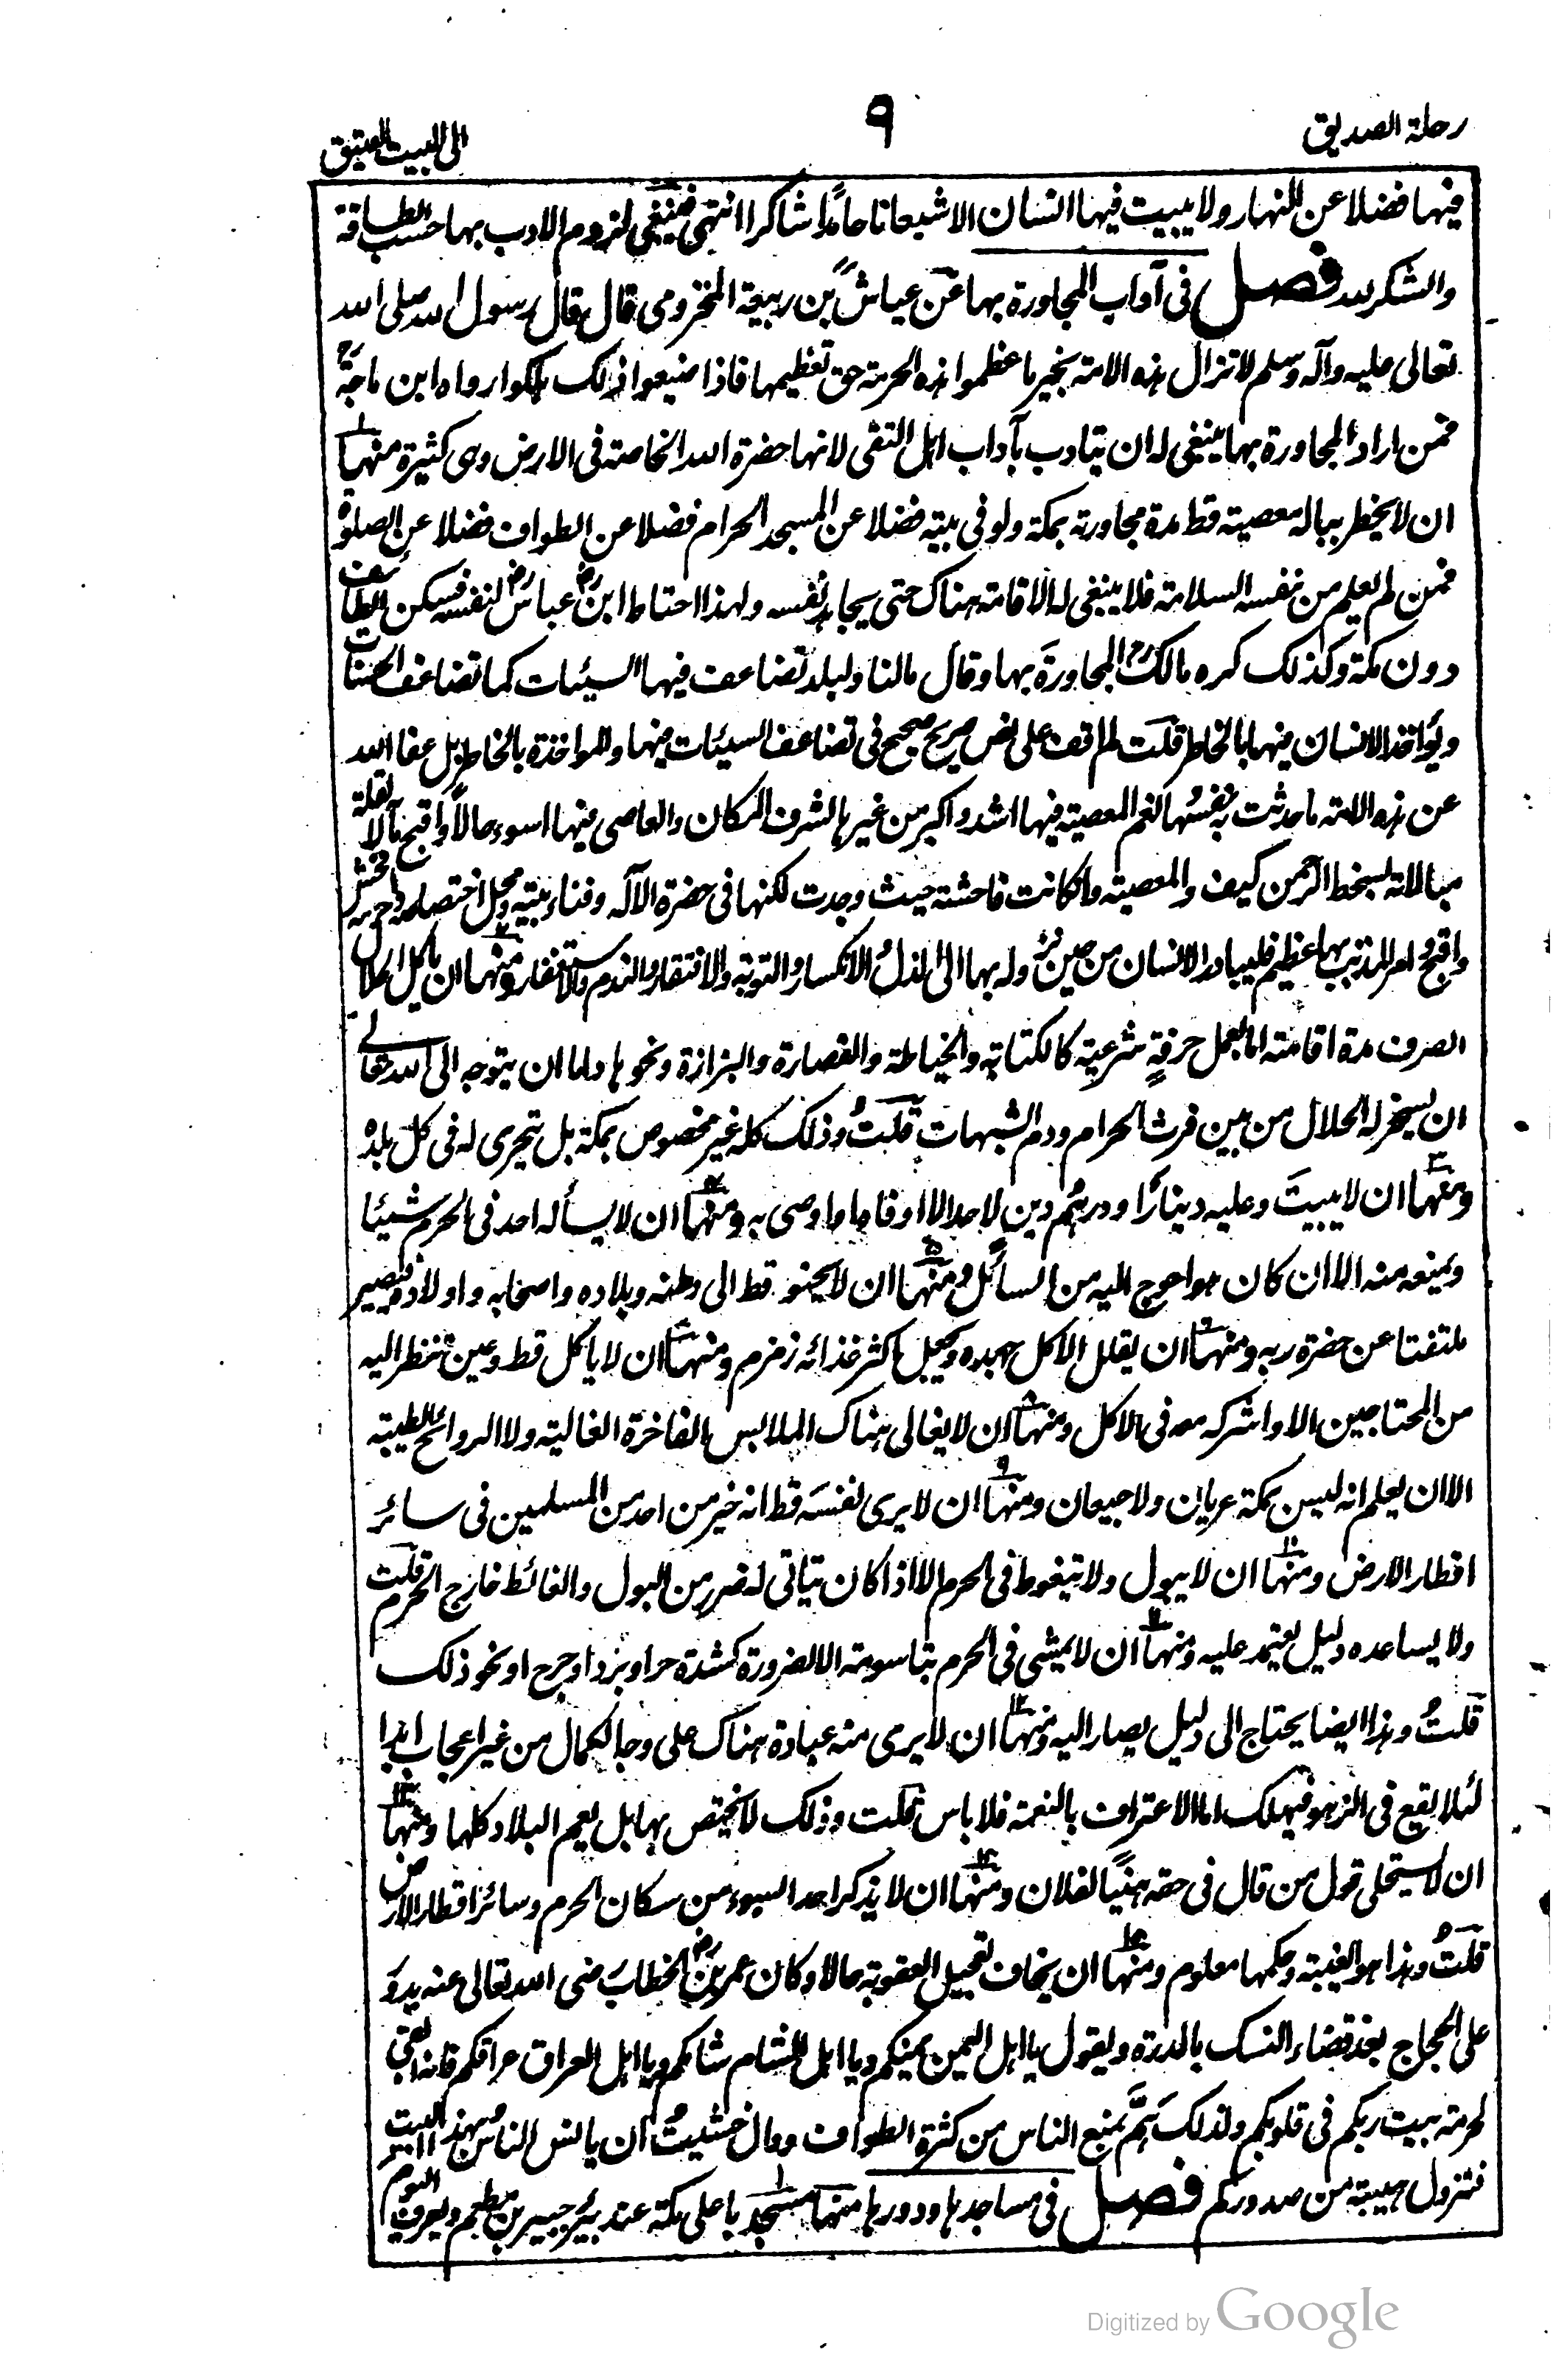 رحلة الصديق
٩
الى البيت العتيق
فيها فضلا عن النهار ولا يبيت فيها انسان الا شبعانا حامدا شاكرا انتهى فينبغى لزوم الادب بها حسب الطاقة
والشكر لله فصل فى آداب المجاورة بها عن عياش بن ربيعة المخزومى قال قال رسول الله صلى الله
تعالى عليه وآله وسلم لا تزال هذه الامة بخير ما عظموا هذه الحرمة حق تعظيمها فاذا ضيعوا ذلك هلكوا رواه ابن ماجة رح
فمن اراد المجاورة بها ينبغى له ان يتادب بآداب اهل التقى لانها حضرة الله الخاصة فى الارض وهى كثيرة منها ١
ان لا يخطر بباله معصية قط مدة مجاورته بمكة ولو فى بيته فضلا عن المسجد الحرام فضلا عن الطواف فضلا عن الصلوة
فمن لم يعلم من نفسه السلامة فلا ينبغى له الاقامة هناك حتى يجاهد نفسه ولهذا احتاط ابن عباس رض لنفسه فسكن الطائف
دون مكة وكذلك كره مالك رح المجاورة بها وقال مالنا ولبلد تضاعف فيها السيئات كما تضاعف الحسنات
ويؤاخذ الانسان فيها بالخاطر قلت لم اقف على نص صريح صحيح فى تضاعف السيئات فيها والمواخذة بالخاطر بل عفا الله
عن هذه الامة ما حدثت به نفسها نعم المعصية فيها اشد واكبر من غيرها لشرف المكان والعاصى فيها اسوء حالا واقبح مآلا لقلة
مبالاته لسخط الرحمن كيف والمعصية وان كانت فاحشة حيث وجدت لكنها فى حضرة الآله وفناء بيته ومحل اختصاصه وحرمه افحش
واقبح امر المذنب بها عظيم فليبادر الانسان من حين نزوله بها الى الذل والانكسار والتوبة والافتقار والندم والاستغفار ومنها ٢ ان ياكل الحلال
الصرف مدة اقامته اما بعمل حرفة شرعية كالكتابة والخياطة والقصارة والبزازة ونحوها واما ان يتوجه الى الله تعالى
ان يسخر له الحلال من بين فرث الحرام ودم الشبهات قلت وذلك كله غير مخصوص بمكة بل يتحرى له فى كل بلدة
ومنها ٣ ان لا يبيت وعليه دينار او درهم دين لاحد الا اوفاه او اوصى به ومنها ٤ ان لا يسأله احد فى الحرم شيئا
ويمنعه منه الا ان كان هو احوج اليه من السائل ومنها ٥ ان لا يحنو قط الى وطنه وبلاده واصحابه واولاده فيصير
ملتفتا عن حضرة ربه ومنها ٦ ان يقلل الاكل جهده ويجعل اكثر غذائه زمزم ومنها ٧ ان لا ياكل قط وعين تنظر اليه
من المحتاجين الا واشركه معه فى الاكل ومنها ٨ ان لا يغالى هناك الملابس الفاخرة الغالية ولا الروائح الطيبة
الا ان يعلم انه ليس بمكة عريان ولا جيعان ومنها ٩ ان لا يرى نفسه قط انه خير من احد من المسلمين فى سائر
اقطار الارض ومنها ١٠ ان لا يبول ولا يتغوط فى الحرم الا اذا كان يتاتى له ضرر من البول والغائط خارج الحرم قلت
ولا يساعده دليل يعتمد عليه ومنها ١١ ان لا يمشى فى الحرم بتاسومة الا لضرورة كشدة حر او برد او جرح او نحو ذلك
قلت وهذا ايضا يحتاج الى دليل يصار اليه ومنها ١٢ ان لا يرى منه عبادة هناك على وجه الكمال من غير اعجاب ابدا
لئلا يقع فى الزهو فيهلك اما الاعتراف بالنعمة فلا باس قلت وذلك لا يختص بها بل يعم البلاد كلها ومنها ١٣
ان لا يستحلى قول من قال فى حقه هنيئا لفلان ومنها ١٤ ان لا يذكر احدا بسوء من سكان الحرم وسائر اقطار الارض
قلت وهذا هو الغيبة وحكمها معلوم ومنها ١٥ ان يخاف تعجيل العقوبة حالا وكان عمر بن الخطاب رضى الله تعالى عنه يدور
على الحجاج بعد قضاء النسك بالدرة ويقول يا اهل اليمن يمنكم ويا اهل الشام شامكم ويا اهل العراق عراقكم فانه ابقى
لحرمة بيت ربكم فى قلوبكم ولذلك هم بمنع الناس من كثرة الطواف وقال خشيت ان يانس الناس بهذا البيت
فتزول هيبته من صدوركم فصل فى مساجدها ودورها منها ١ مسجد باعلى مكة عند بئر جبير بن مطعم ويعرف اليوم
Digitized by Google